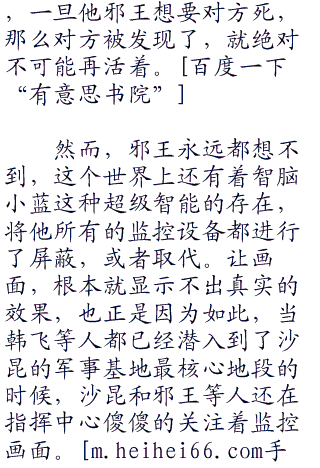 ，一旦他邪王想要对方死，
那么对方被发现了，就绝对
不可能再活着。[百度一下
“有意思书院”]
然而，邪王永远都想不
到，这个世界上还有着智脑
小蓝这种超级智能的存在，
将他所有的监控设备都进行
了屏蔽，或者取代。让画
面，根本就显示不出真实的
效果，也正是因为如此，当
韩飞等人都已经潜入到了沙
昆的军事基地最核心地段的
时候，沙昆和邪王等人还在
指挥中心傻傻的关注着监控
画面。[m.heihei66.com手